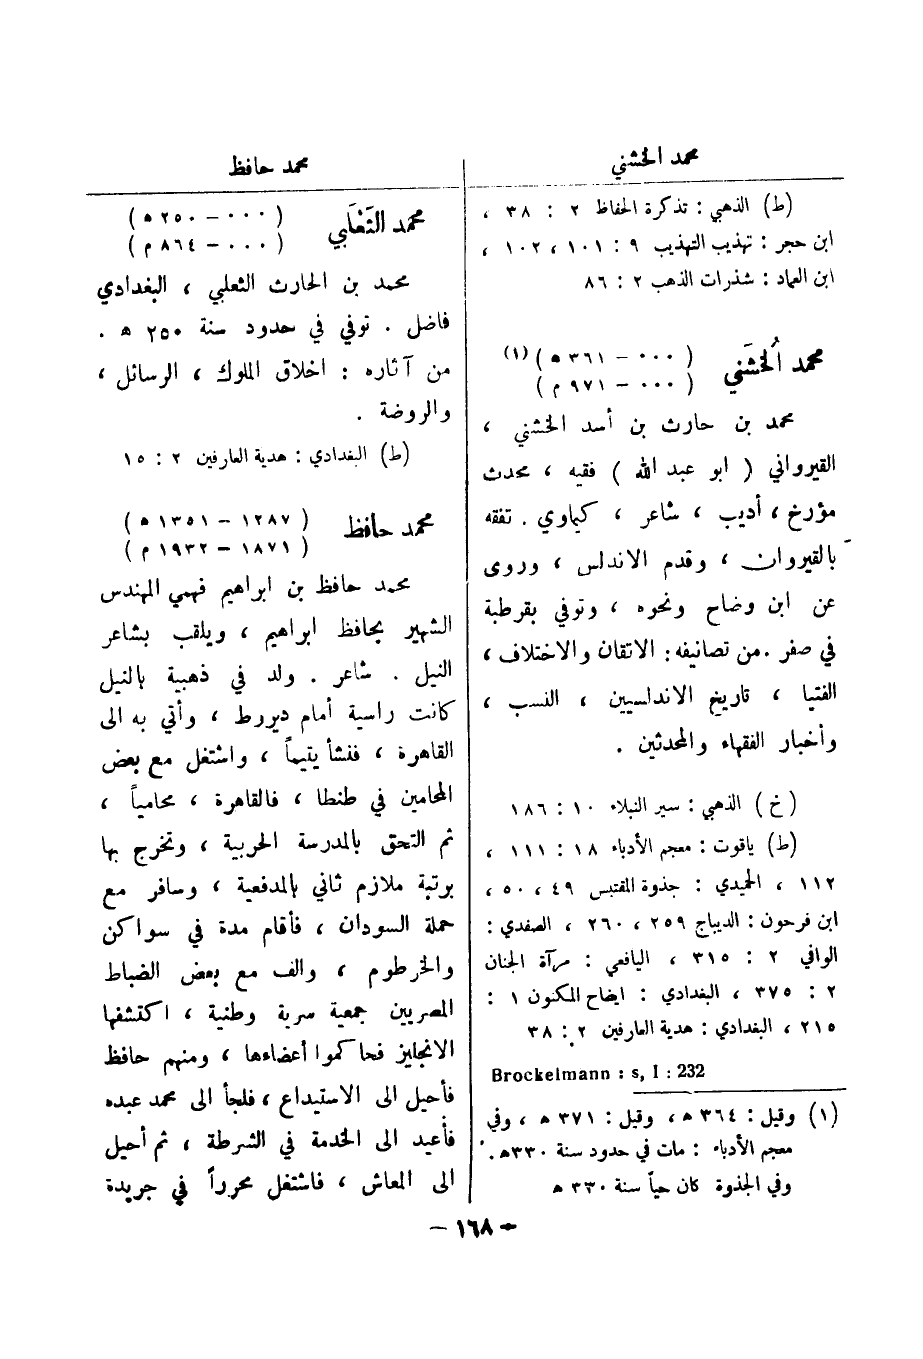 محمد الخشني
(ط) الذهبي : تذكرة الحفاظ ٢ : ٣٨ ،
ابن حجر : تهذيب التهذيب ٩ : ١٠١ ، ١٠٢ ،
ابن العماد : شذرات الذهب ٢ : ٨٦
محمد الُخشَني ( ٠٠٠ - ٣٦١ ه ) (١)
( ٠٠٠ - ٩٧١ م )
محمد بن حارث بن أسد الخشني ،
القيرواني ( ابو عبد الله ) فقيه ، محدث
مؤرخ ، أديب ، شاعر ، كيماوي . تفقه
بالقيروان ، وقدم الاندلس ، وروى
عن ابن وضاح ونحوه ، وتوفي بقرطبة
في صفر . من تصانيفه : الاتقان والاختلاف ،
الفتيا ، تاريخ الاندلسيين ، النسب ،
وأخبار الفقهاء والمحدثين .
( خ ) الذهبي : سير النبلاء ١٠ : ١٨٦
(ط) ياقوت : معجم الأدباء ١٨ : ١١١ ،
١١٢ ، الحميدي : جذوة المقتبس ٤٩ ، ٥٠ ،
ابن فرحون : الديباج ٢٥٩ ، ٢٦٠ ، الصفدي :
الوافي ٢ : ٣١٥ ، اليافعي : مرآة الجنان
٢ : ٣٧٥ ، البغدادي : ايضاح المكنون ١ :
٢١٥ ، البغدادي : هدية العارفين ٢ : ٣٨
Brockelmann : s, I : 232
(١) وقيل : ٣٦٤ ه ، وقيل : ٣٧١ ه ، وفي
معجم الأدباء : مات في حدود سنة ٣٣٠ه .
وفي الجذوة كان حياً سنة ٣٣٠ ه
محمد حافظ
محمد الثَعْلَبي ( ٠٠٠ - ٢٥٠ ه )
( ٠٠٠ - ٨٦٤ م )
محمد بن الحارث الثعلبي ، البغدادي
فاضل . توفي في حدود سنة ٢٥٠ ه .
من آثاره : اخلاق الملوك ، الرسائل ،
والروضة .
(ط) البغدادي : هدية العارفين ٢ : ١٥
محمد حافظ ( ١٢٨٧ - ١٣٥١ ه )
( ١٨٧١ - ١٩٣٢ م )
محمد حافظ بن ابراهيم فهمي المهندس
الشهير بحافظ ابراهيم ، ويلقب بشاعر
النيل . شاعر . ولد في ذهبية بالنيل
كانت راسية أمام ديروط ، وأتي به الى
القاهرة ، فنشأ يتيماً ، واشتغل مع بعض
المحامين في طنطا ، فالقاهرة ، محامياً ،
ثم التحق بالمدرسة الحربية ، وتخرج بها
برتبة ملازم ثاني بالمدفعية ، وسافر مع
حملة السودان ، فأقام مدة في سواكن
والخرطوم ، والف مع بعض الضباط
المصريين جمعية سرية وطنية ، اكتشفها
الانجليز فحاكموا أعضاءها ، ومنهم حافظ
فأحيل الى الاستيداع ، فلجأ الى محمد عبده
فأُعيد الى الخدمة في الشرطة ، ثم أحيل
الى المعاش ، فاشتغل محرراً في جريدة
- ١٦٨ -